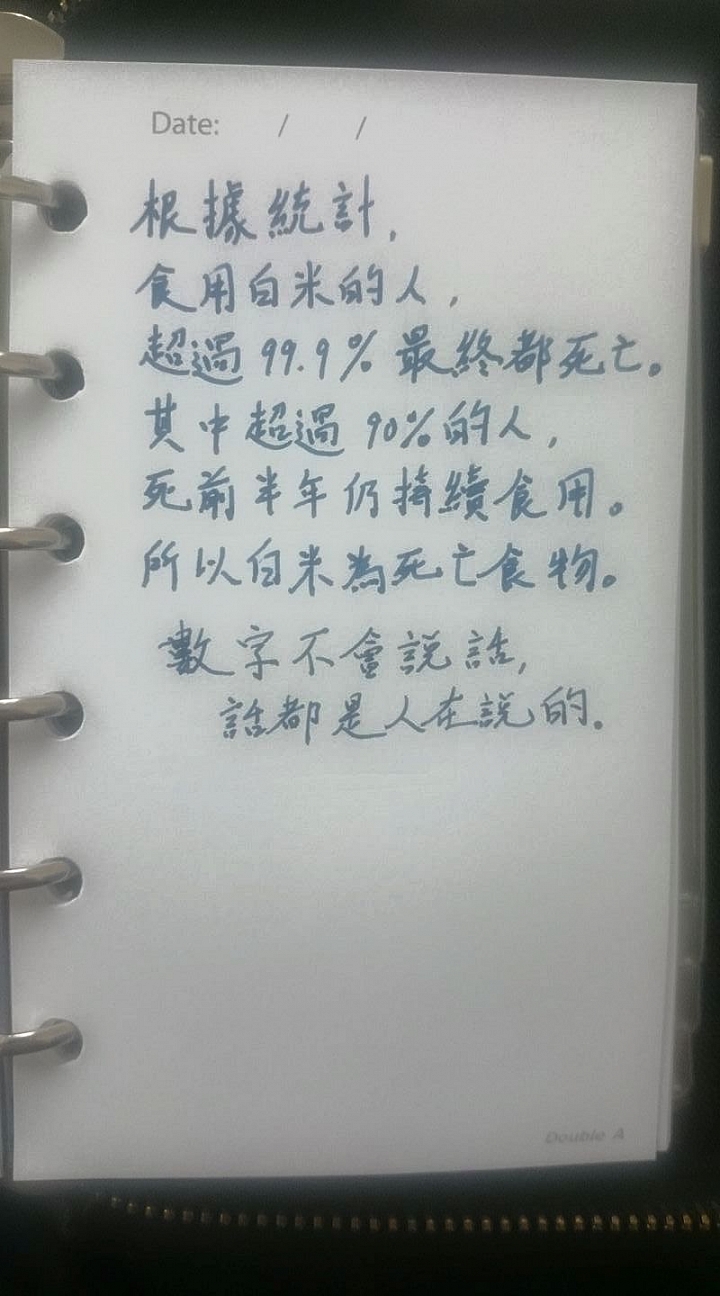 Date: / /
根據統計,
食用白米的人,
超過99.9%最終都死亡。
其中超過90%的人,
死前半年仍持續食用。
所以白米為死亡食物。
數字不會說話,
話都是人在說的。
Double A